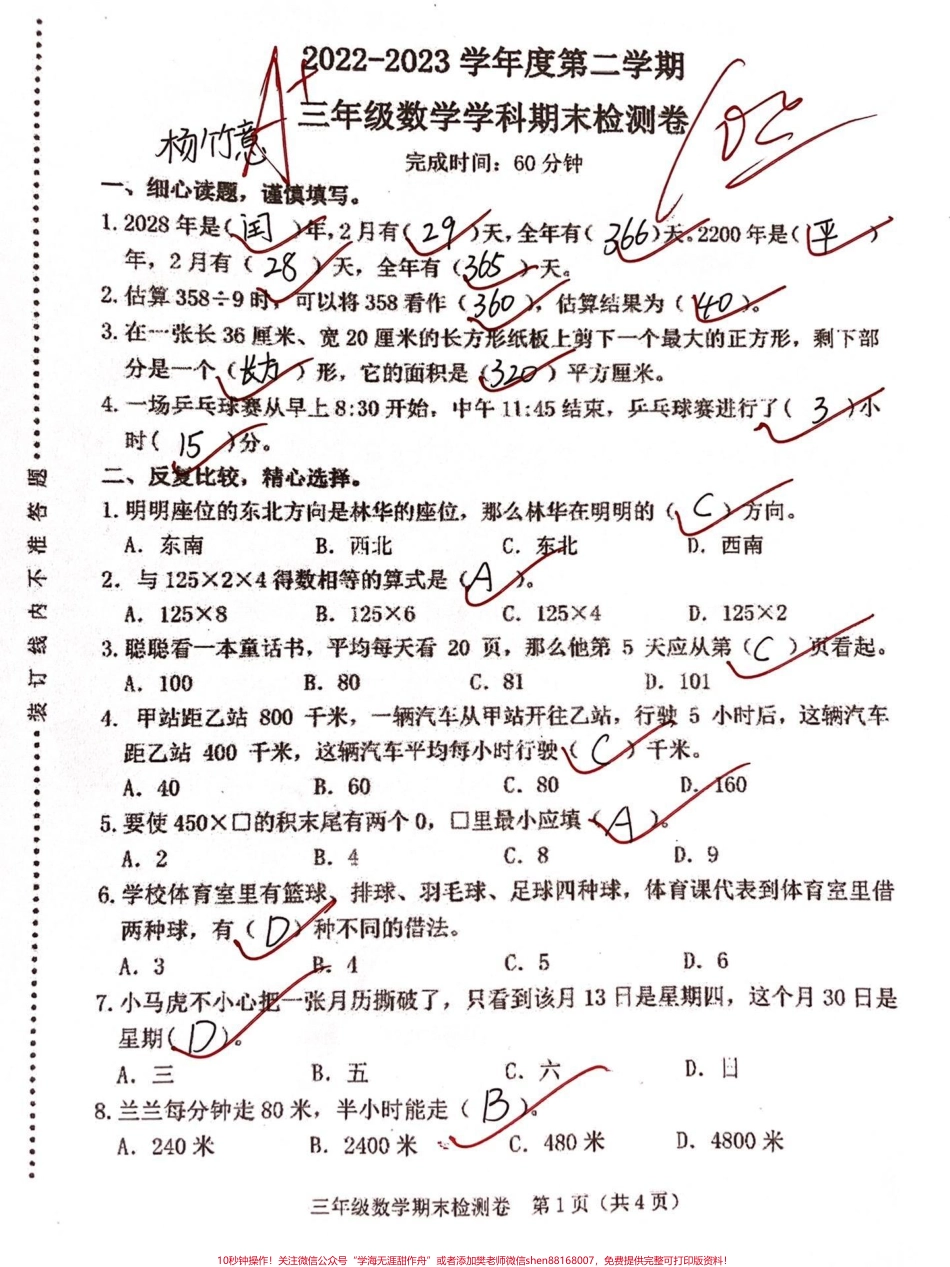 2022-2023 学年度第二学期
A+
三年级数学学科期末检测卷
杨竹意
完成时间：60 分钟
一、细心读题，谨慎填写。
1. 2028 年是( 闰 )年, 2 月有( 29 )天, 全年有( 366 )天。2200 年是( 平 )
年，2 月有( 28 )天，全年有(365 )天。
2. 估算 358÷9 时，可以将 358 看作( 360 )，估算结果为( 40 )。
3. 在一张长 36 厘米、宽 20 厘米的长方形纸板上剪下一个最大的正方形，剩下部
分是一个(长方)形，它的面积是(320)平方厘米。
4. 一场乒乓球赛从早上 8:30 开始，中午 11:45 结束，乒乓球赛进行了( 3 )小
时( 15 )分。
二、反复比较，精心选择。
1. 明明座位的东北方向是林华的座位，那么林华在明明的( C )方向。
A. 东南 B. 西北 C. 东北 D. 西南
2. 与 125×2×4 得数相等的算式是(A)。
A. 125×8 B. 125×6 C. 125×4 D. 125×2
3. 聪聪看一本童话书，平均每天看 20 页，那么他第 5 天应从第( C )页看起。
A. 100 B. 80 C. 81 D. 101
4. 甲站距乙站 800 千米，一辆汽车从甲站开往乙站，行驶 5 小时后，这辆汽车
距乙站 400 千米，这辆汽车平均每小时行驶( C )千米。
A. 40 B. 60 C. 80 D. 160
5. 要使 450×□的积末尾有两个 0，□里最小应填( A )。
A. 2 B. 4 C. 8 D. 9
6. 学校体育室里有篮球、排球、羽毛球、足球四种球，体育课代表到体育室里借
两种球，有( D )种不同的借法。
A. 3 B. 4 C. 5 D. 6
7. 小马虎不小心把一张月历撕破了，只看到该月 13 日是星期四，这个月 30 日是
星期( D )。
A. 三 B. 五 C. 六 D. 日
8. 兰兰每分钟走 80 米，半小时能走( B )。
A. 240 米 B. 2400 米 C. 480 米 D. 4800 米
三年级数学期末检测卷 第 1 页（共 4 页）
装订线内不准答题
10秒钟操作！关注微信公众号“学海无涯甜作舟”或者添加樊老师微信shen88168007，免费提供完整可打印版资料！